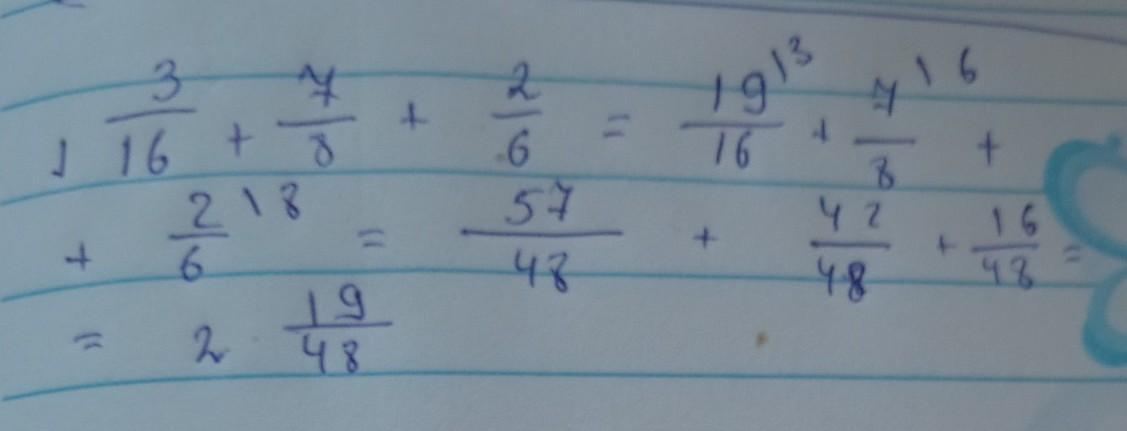 1 3/16 + 7/8 + 2/6 = 19\3/16 + 7\6/8 +
+ 2\8/6 = 57/48 + 42/48 + 16/48 =
= 2 19/48